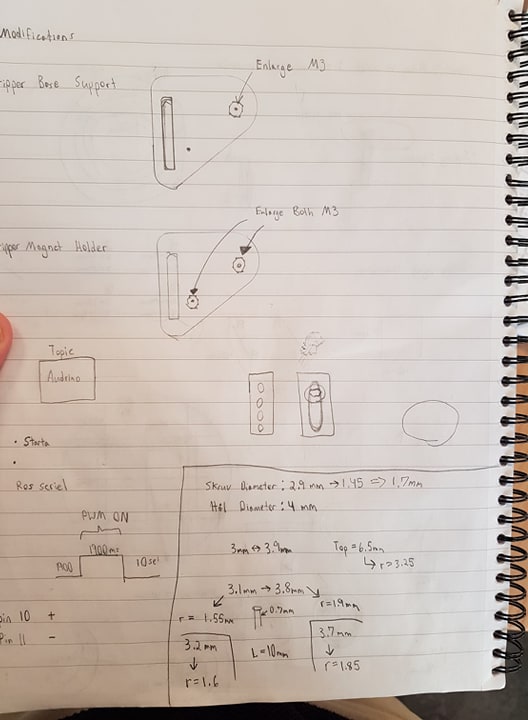 Modifications
ipper Base Support
Enlarge M3
Enlarge Both M3
ipper Magnet Holder
Topic
Audrino
• Starta
•
Ros seriel
PWM ON
1900ms
1900
10sec
pin 10 +
Pin 11 -
Skruv Diameter : 2.9 mm → 1.45 => 1.7mm
Hål Diameter : 4 mm
3mm ↔ 3.9mm
Top = 6.5mm
↳ r = 3.25
3.1mm → 3.8mm
r = 1.55mm
0.7mm
r = 1.9mm
3.2mm
↓
r = 1.6
L = 10mm
3.7mm
↓
r = 1.85